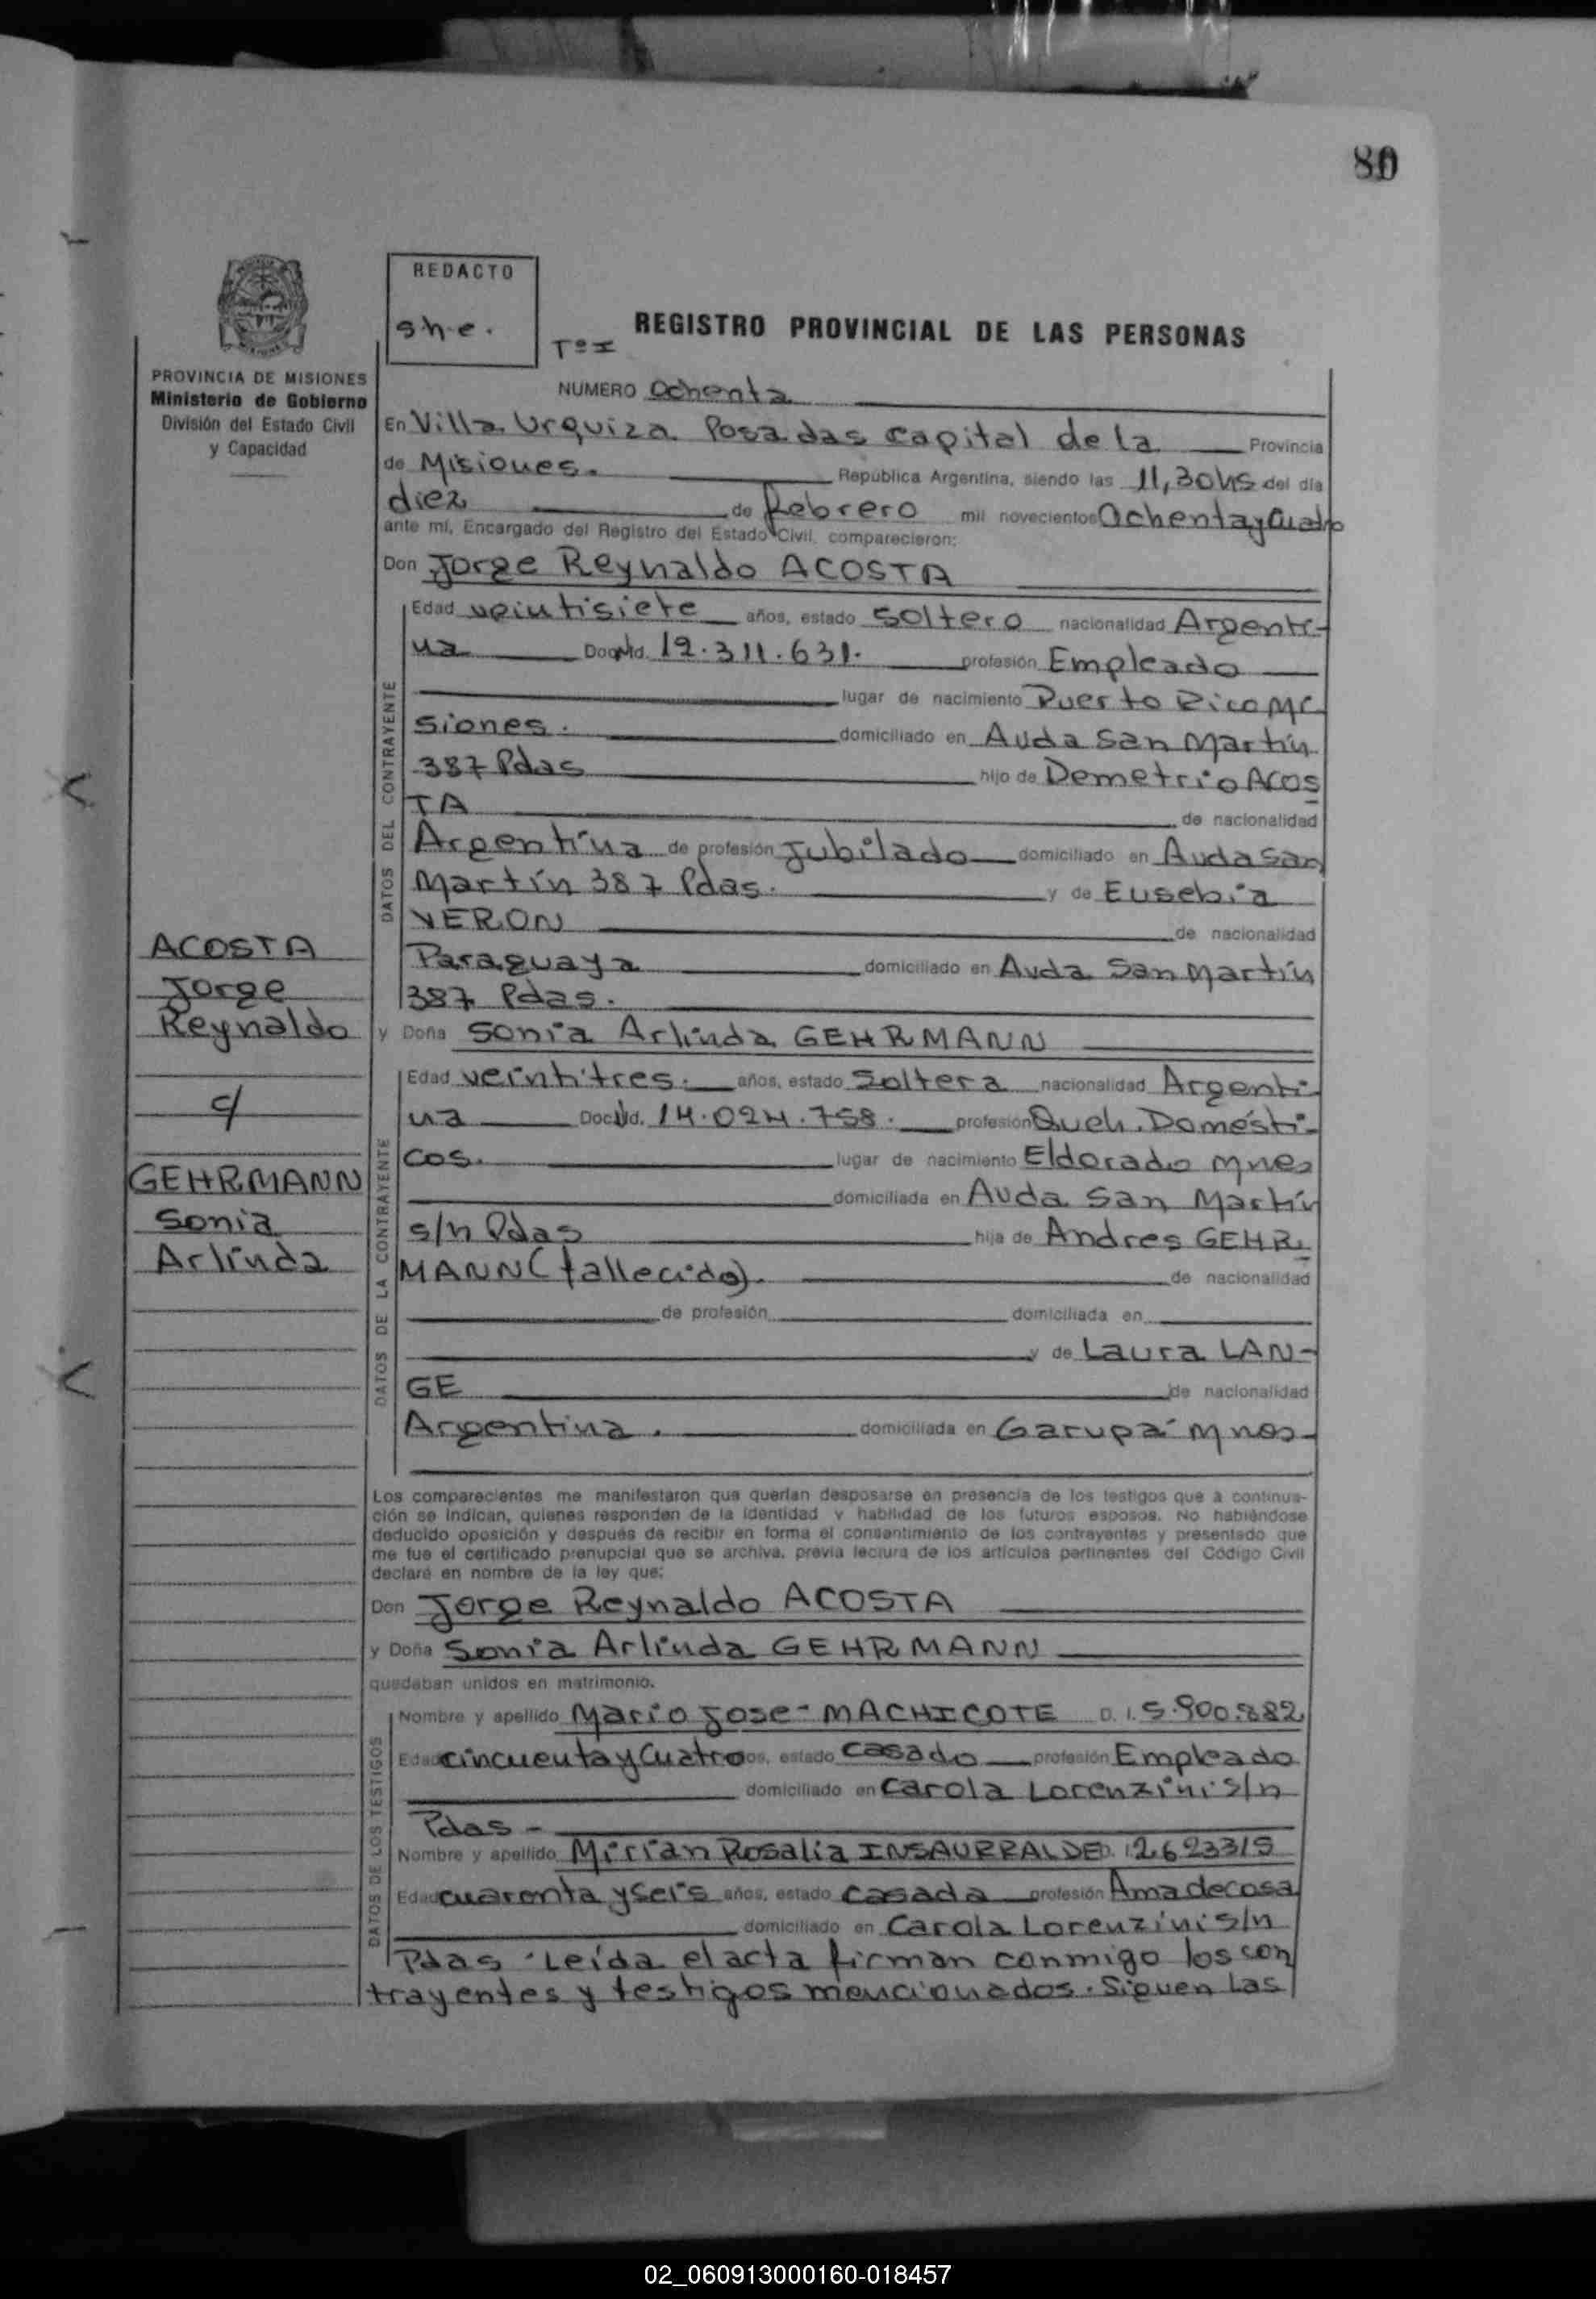 80
REDACTO
s h.e.
Tº I
REGISTRO PROVINCIAL DE LAS PERSONAS
PROVINCIA DE MISIONES
Ministerio de Gobierno
División del Estado Civil
y Capacidad
NUMERO Ochenta
En Villa Urquiza Posadas capital de la Provincia
de Misiones. República Argentina, siendo las 11,30 hs del día
diez de febrero mil novecientos Ochenta y Cuatro
ante mí, Encargado del Registro del Estado Civil, comparecieron:
Don Jorge Reynaldo ACOSTA
DATOS DEL CONTRAYENTE
Edad veintisiete años, estado Soltero nacionalidad Argenti-
na Doc. Nd. 12.311.631. profesión Empleado
lugar de nacimiento Puerto Rico Mi
siones. domiciliado en Avda San Martín
387 Pdas hijo de Demetrio ACOS
TA de nacionalidad
Argentina de profesión Jubilado domiciliado en Avda San
Martín 387 Pdas. y de Eusebia
VERON de nacionalidad
Paraguaya domiciliado en Avda San Martín
387 Pdas.
ACOSTA
Jorge
Reynaldo
c/
GEHRMANN
Sonia
Arlinda
y Doña Sonia Arlinda GEHRMANN
DATOS DE LA CONTRAYENTE
Edad veintitres. años, estado Soltera nacionalidad Argenti-
na Doc. Nd. 14.024.758. profesión Queh. Domésti-
cos. lugar de nacimiento Eldorado Mnes
domiciliada en Avda San Martín
s/n Pdas hija de Andres GEHR
MANN (fallecido). de nacionalidad
de profesión domiciliada en
y de Laura LAN-
GE de nacionalidad
Argentina. domiciliada en Garupá Mnes
Los comparecientes me manifestaron que querían desposarse en presencia de los testigos que a continua-
ción se indican, quienes responden de la identidad y habilidad de los futuros esposos. No habiéndose
deducido oposición y después de recibir en forma el consentimiento de los contrayentes y presentado que
me fue el certificado prenupcial que se archiva, previa lectura de los artículos pertinentes del Código Civil
declaré en nombre de la ley que:
Don Jorge Reynaldo ACOSTA
y Doña Sonia Arlinda GEHRMANN
quedaban unidos en matrimonio.
DATOS DE LOS TESTIGOS
Nombre y apellido Mario Jose MACHICOTE D. I. 5.900.882
Edad cincuenta y Cuatro años, estado casado profesión Empleado
domiciliado en Carola Lorenzini s/n
Pdas -
Nombre y apellido Mirian Rosalia INSAURRALDE D. I 2623319
Edad cuarenta y seis años, estado casada profesión Ama de casa
domiciliado en Carola Lorenzini s/n
Pdas - Leída el acta firman conmigo los con
trayentes y testigos mencionados. Siguen las
02_060913000160-018457